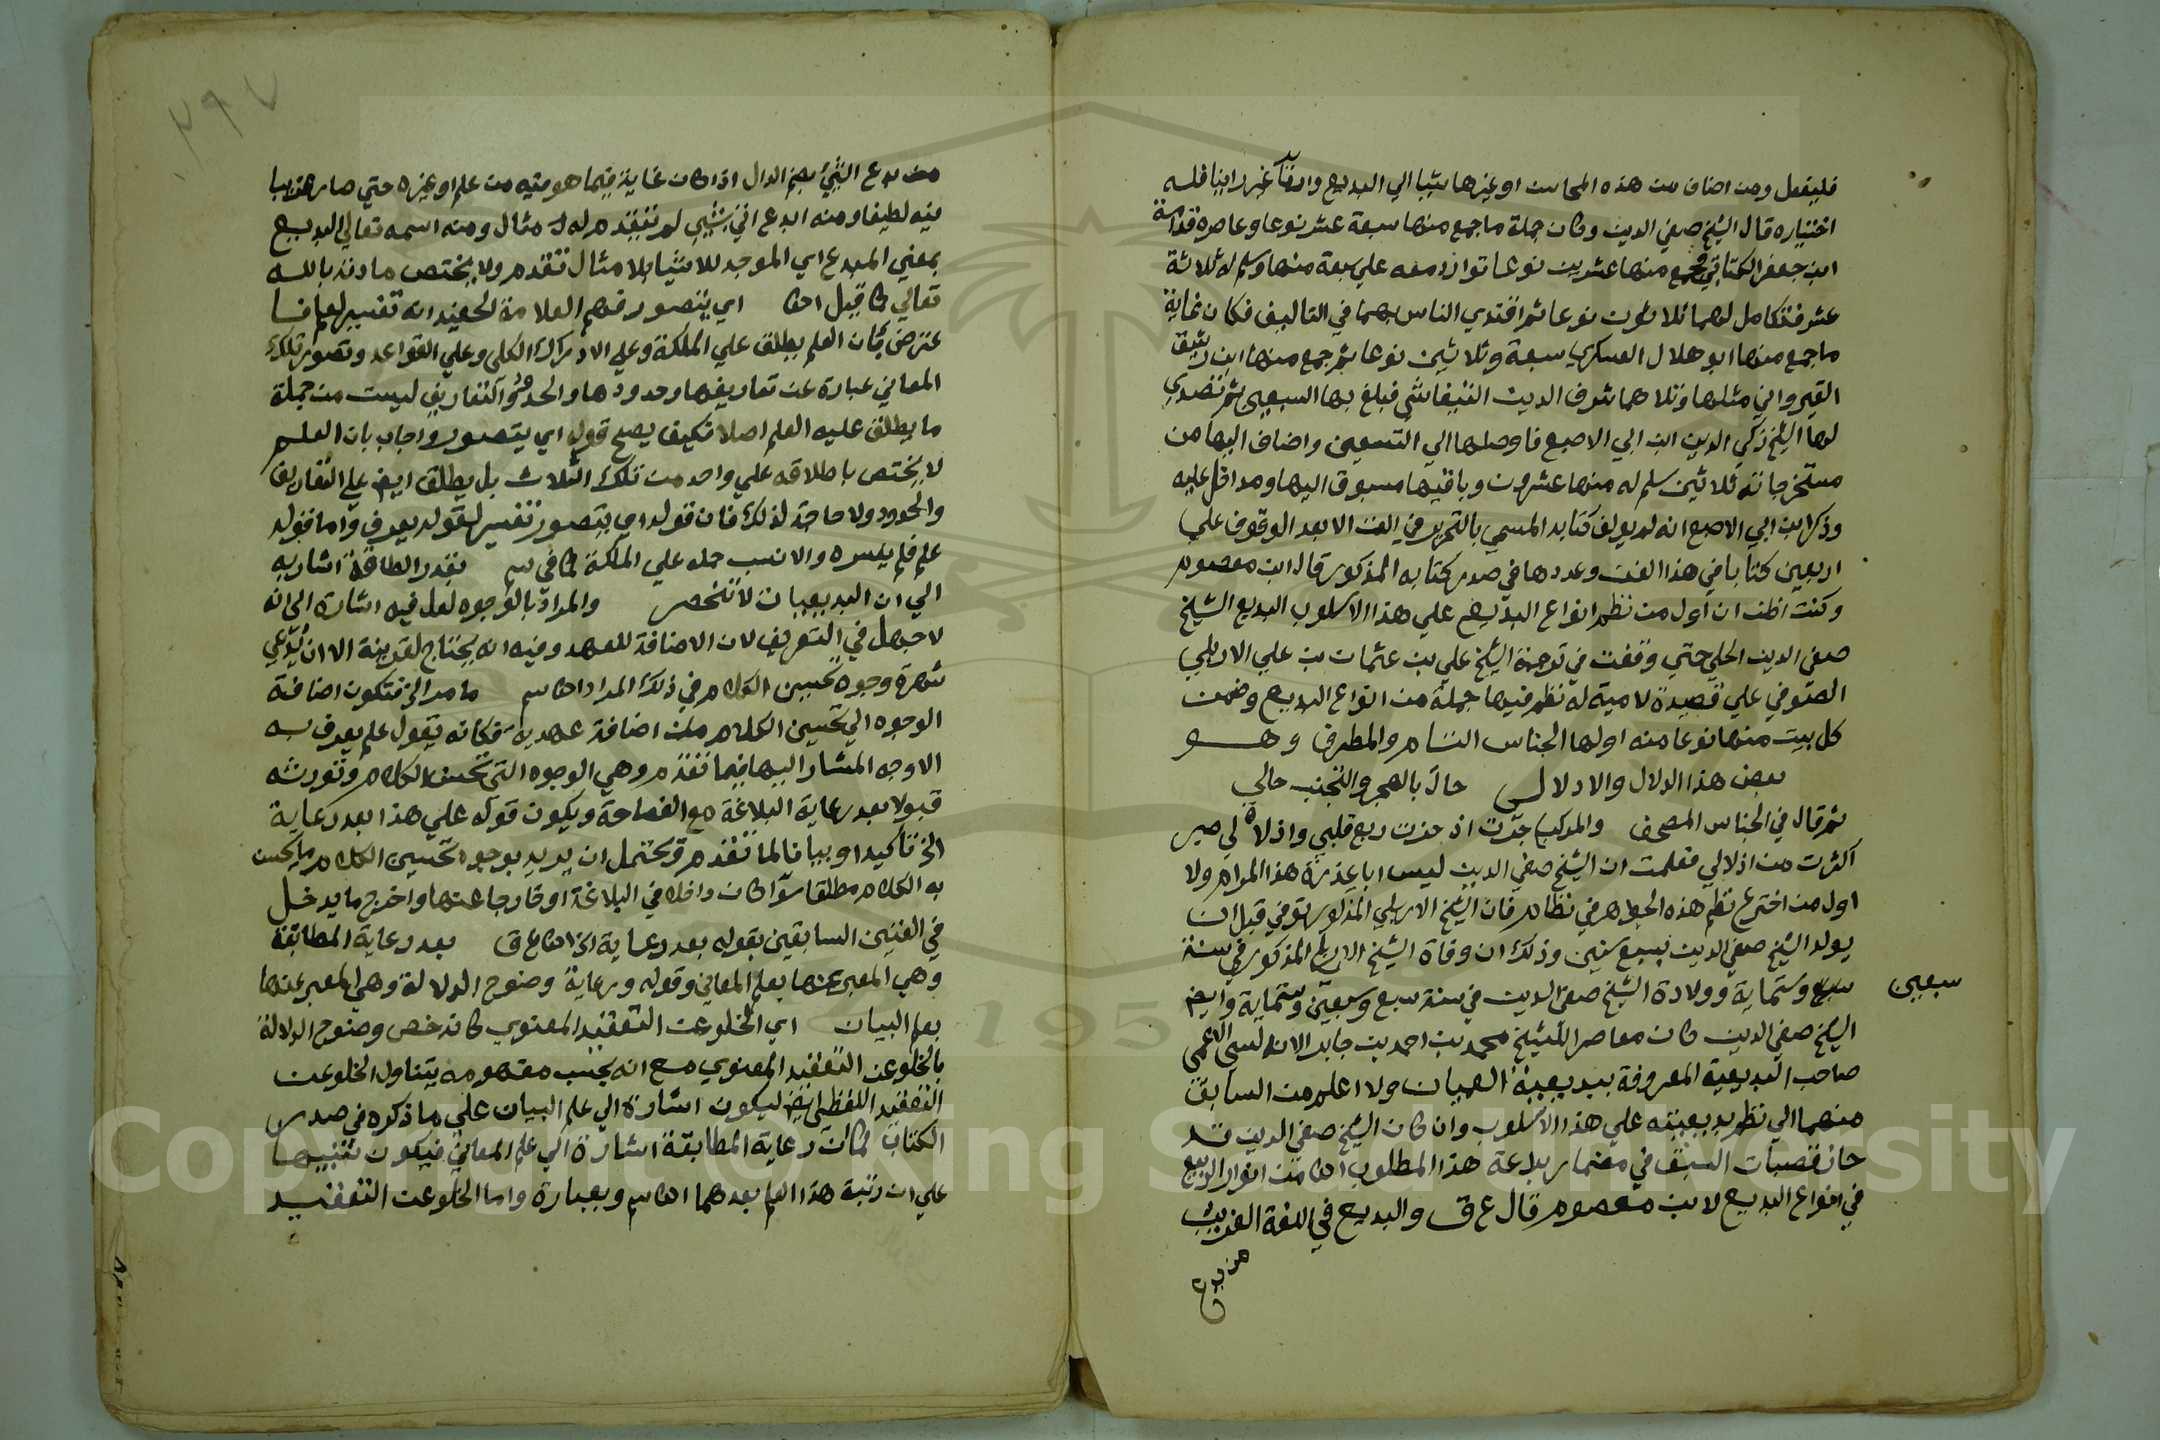 فليفعل ومن اضاف من هذه المحاسن او غيرها شيا الي البديع وارتأى غير راينا فله
اختياره قال الشيخ صفي الدين وكان جملة ما جمع منها سبعة عشر نوعا وعاصره قدامة
ابن جعفر الكتابي فجمع منها عشرين نوعا توارد معه علي سبعة منها وسلم له ثلاثة
عشر فتكامل لهما ثلاثون نوعا ثم اقتدي الناس بهما في التاليف فكان غاية
ما جمع منها ابو هلال العسكري سبعة وثلاثين نوعا ثم جمع منها ابن رشيق
القيرواني مثلها وتلاهما شرف الدين التيفاشي فبلغ بها السبعين ثم تصدي
لها الشيخ زكي الدين ابن ابي الاصبع فاوصلها الي التسعين واضاف اليها من
مستخرجاته ثلاثين سلم له منها عشرون وباقيها مسبوق اليها ومداخل عليه
وذكر ابن ابي الاصبع انه لم يولف كتابه المسمي بالتحرير في الفن الا بعد الوقوف علي
اربعين كتابا في هذا الفن وعددها في صدر كتابه المذكور قال ابن معصوم
وكنت اظن ان اول من نظم انواع البديع علي هذا الاسلوب البديع الشيخ
صفي الدين الحلي حتي وقفت في ترجمة الشيخ علي بن عثمان بن علي الاربلي
الصوفي علي قصيدة لامية له نظم فيها جملة من انواع البديع وضمن
كل بيت منها نوعا منه اولها الجناس التام والمطرف وهو
بعض هذا الدلال والادلال حال بالهجر والتجنب حالي
ثم قال في الجناس المصحف والمركب جرت اذ حزت ربع قلبي واذلالي صبر
اكثرت من اذلالي فعلمت ان الشيخ صفي الدين ليس ابا عذرة هذا المرام ولا
اول من اخترع نظم هذه الجواهر في نظام فان الشيخ الاربلي المذكور توفي قبل ان
يولد الشيخ صفي الدين بسبع سنين وذلك ان وفاة الشيخ الاربلي المذكور في سنة
سبعين
سبع وستماية وولادة الشيخ صفي الدين في سنة سبع وسبعين وستماية وايض
الشيخ صفي الدين كان معاصرا للشيخ محمد بن احمد بن جابر الاندلسي الاعمي
صاحب البديعية المعروفة ببديعية العميان ولا اعلم من السابق
منهما الي نظم بديعيته علي هذا الاسلوب وان كان الشيخ صفي الدين قد
حاز قصبات السبق في مضمار براعة هذا المطلوب اه من انوار الربيع
في انواع البديع لابن معصوم قال ع ق والبديع في اللغة الغريب
من بدع
من بدع الشئ بضم الدال اذا كان غاية فيما هو فيه من علم او غيره حتي صار غريبا
فيه لطيفا ومنه ابدع اتي بشي لم يتقدم له مثال ومنه اسمه تعالي البديع
بمعني المبدع اي الموجد للاشيا بلا مثال تقدم ولا يختص مادته بالله
تعالي كما قيل اه اي يتصور فهم العلامة الحفيد انه تفسير لعلم فا
عترض بان العلم يطلق علي الملكة وعلي الادراك الكلي وعلي القواعد وتصور تلك
المعاني عبارة عن تعاريفها وحدودها والحدود والتعاريف ليست من جملة
ما يطلق عليه العلم اصلا فكيف يصح قوله اي يتصور واجاب بان العلم
لا يختص باطلاقه علي واحد من تلك الثلاث بل يطلق ايض علي التعاريف
والحدود ولا حاجة لذلك فان قوله اي يتصور تفسير لقوله يعرف واما قوله
علم فلم يفسره والانسب حمله علي الملكة كما في سم بقدر الطاقة اشار به
الي ان البديعيات لا تنحصر والمراد بالوجوه لعل فيه اشارة الي انه
لا جهل في التعريف لان الاضافة للعهد وفيه انه يحتاج لقرينة الا ان يدعي
شهرة وجوه تحسين الكلام في ذلك المراد اه سم ما مر الخ فتكون اضافة
الوجوه الي تحسين الكلام من اضافة عهدية فكانه يقول علم يعرف به
الاوجه المشار اليها فيما تقدم وهي الوجوه التي تحسن الكلام وتورثه
قبولا بعد رعاية البلاغة مع الفصاحة ويكون قوله علي هذا بعد رعاية
الخ تاكيدا وبيانا لما تقدم ويحتمل ان يريد بوجوه تحسين الكلام ما يحسن
به الكلام مطلقا سوآ كان داخلا في البلاغة او خارجا عنها واخرج ما يدخل
في الفنين السابقين بقوله بعد رعاية الخ اه ع ق بعد رعاية المطابقة
وهي المعبر عنها بعلم المعاني وقوله ورعاية وضوح الدلالة وهي المعبر عنها
بعلم البيان اي الخلو عن التعقيد المعنوي كانه خص وضوح الدلالة
بالخلو عن التعقيد المعنوي مع انه بحسب مفهومه يتناول الخلو عن
التعقيد اللفظي ايض ليكون اشارة الي علم البيان علي ما ذكره في صدر
الكتاب كما ان رعاية المطابقة اشارة الي علم المعاني فيكون تنبيها
علي ان رتبة هذا العلم بعدهما اه سم وبعبارة واما الخلو عن التعقيد